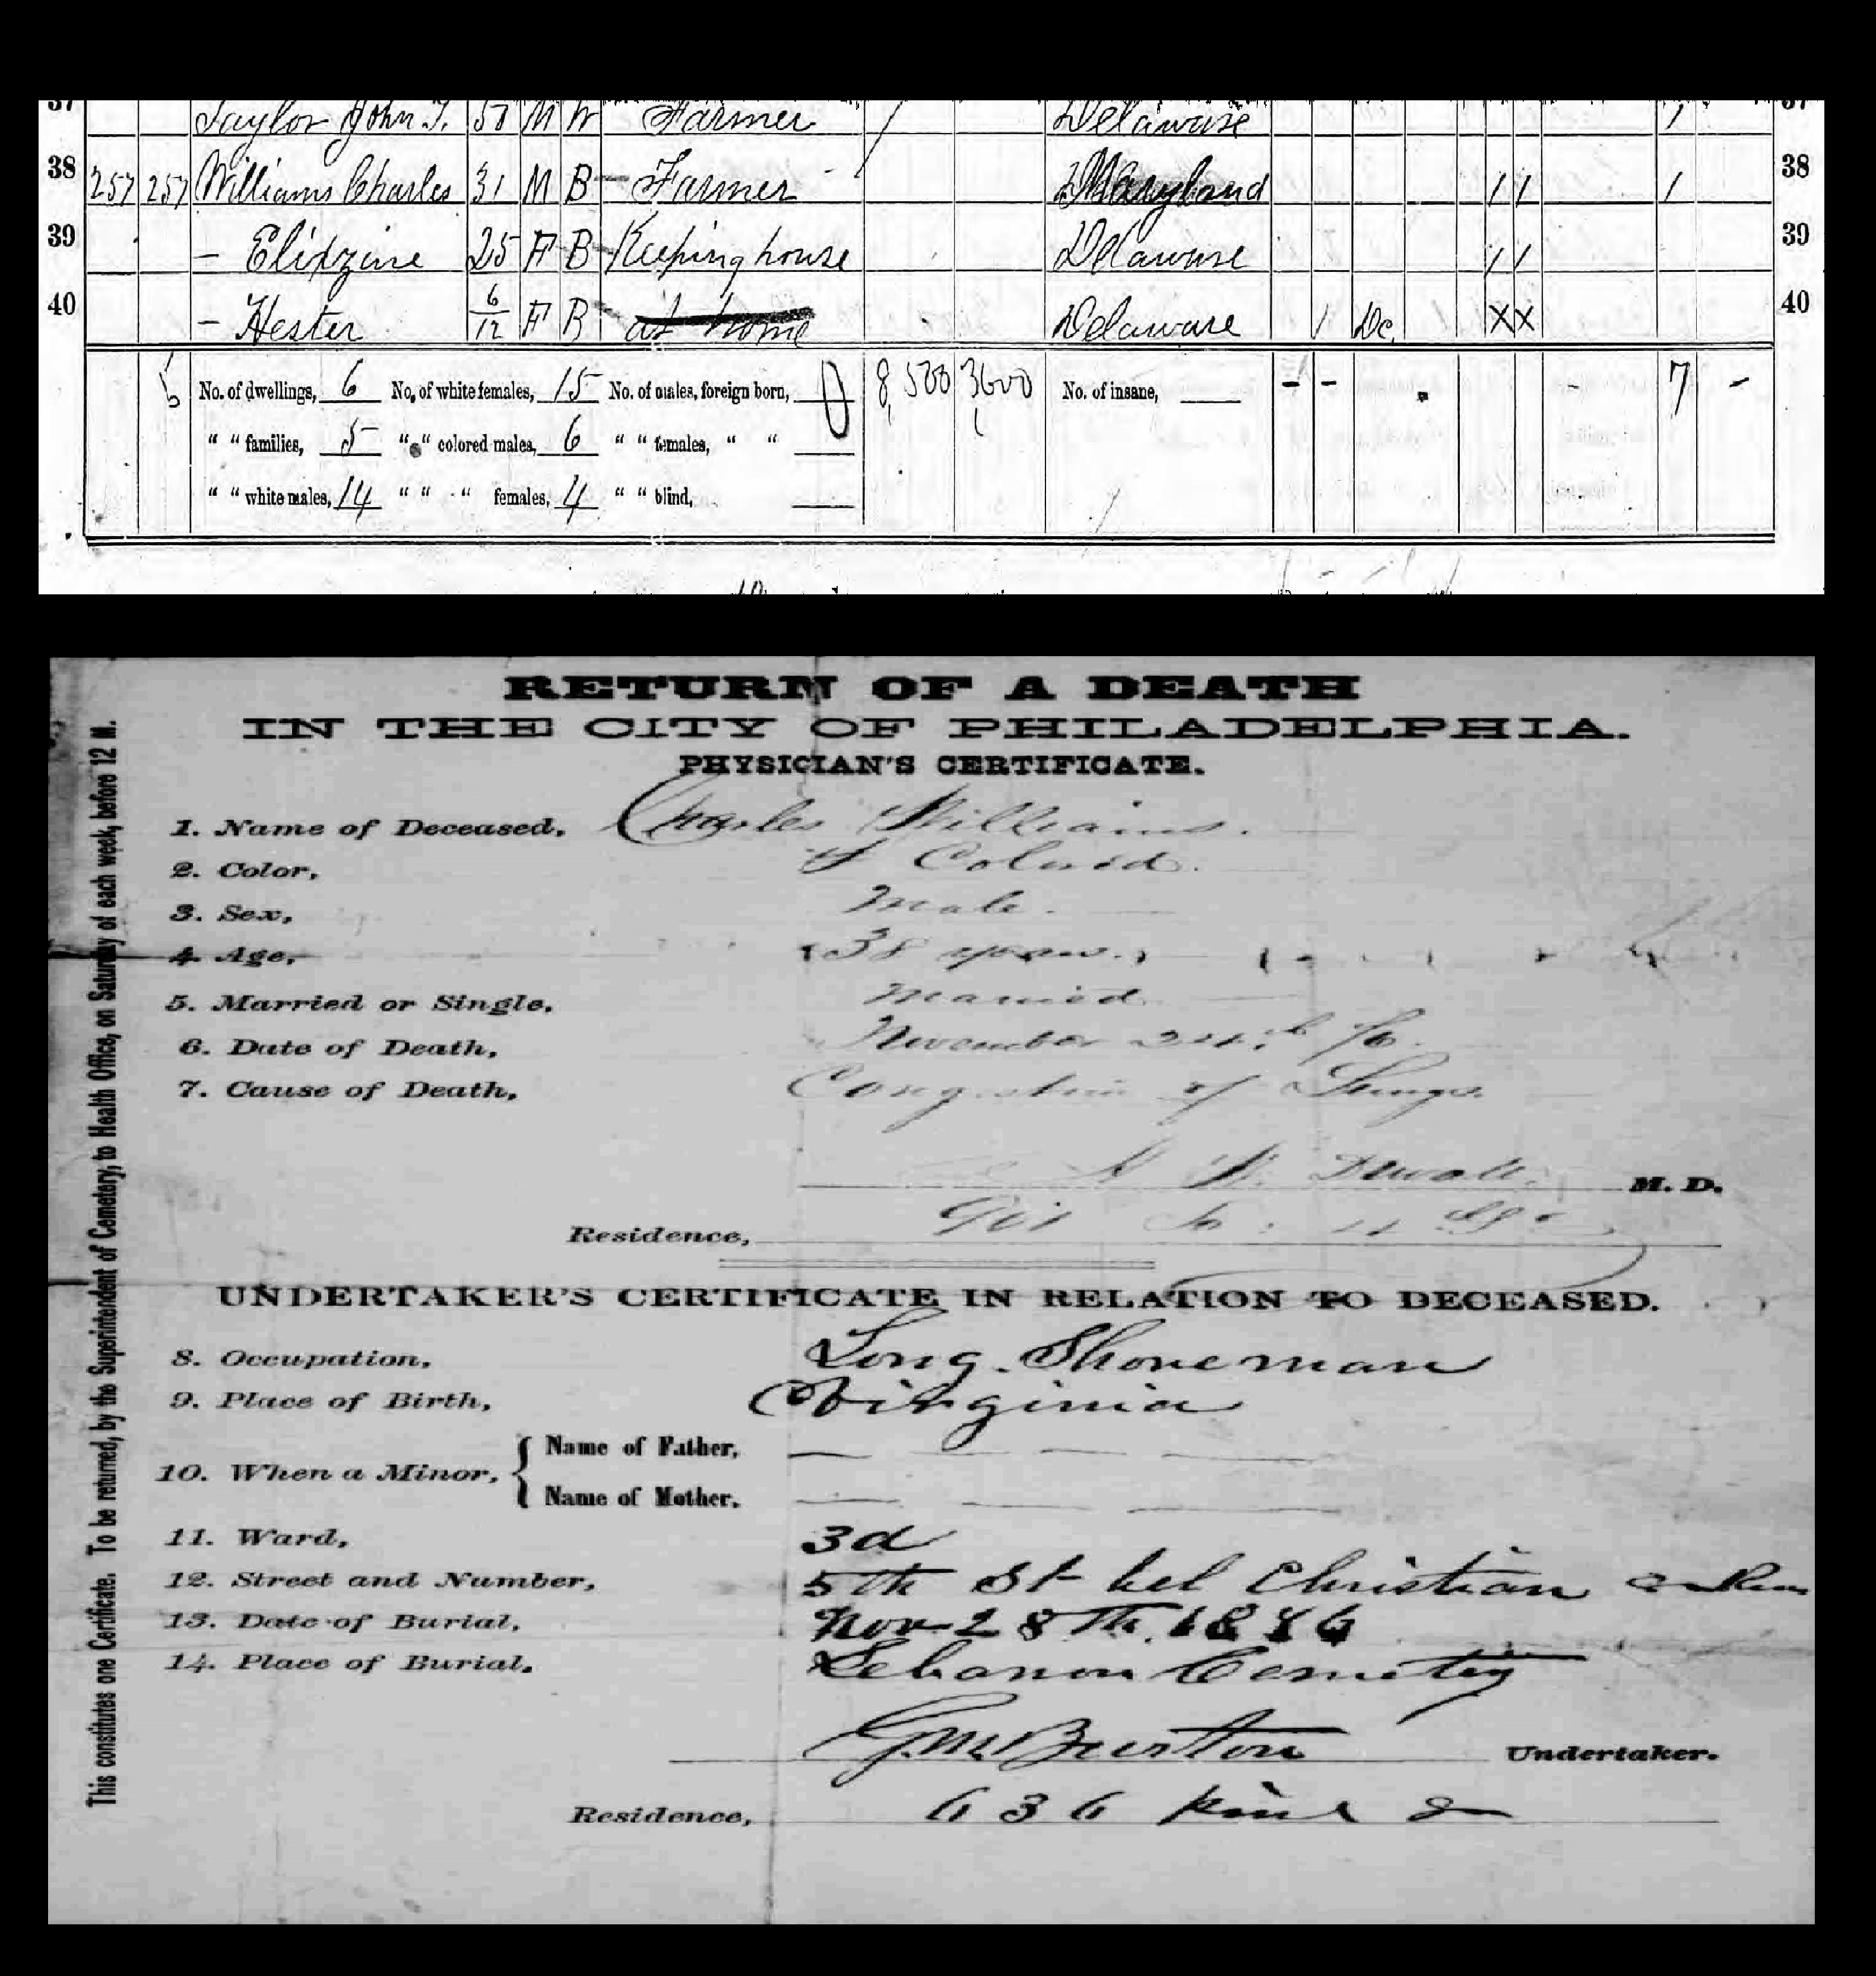 37 Taylor John T. 5 M W Farmer 1 Delaware 1 37
38 257 257 Williams Charles 31 M B Farmer Maryland 1 1 1 38
39 – Elidzine 25 F B Keeping house Delaware 1 1 39
40 – Hester 6/12 F B at home Delaware 1 Dc. X X 40
5 No. of dwellings, 6 No. of white females, 15 No. of males, foreign born, 0 8,500 3600 No. of insane, - - 7 -
" " families, 5 " " colored males, 6 " " females, " "
" " white males, 14 " " " females, 4 " " blind,
RETURN OF A DEATH
IN THE CITY OF PHILADELPHIA.
PHYSICIAN'S CERTIFICATE.
1. Name of Deceased, Charles Williams.
2. Color, Colored.
3. Sex, Male.
4. Age, 38 years.
5. Married or Single, Married
6. Date of Death, November 24th /76.
7. Cause of Death, Congestion of Lungs.
M. D.
Residence,
UNDERTAKER'S CERTIFICATE IN RELATION TO DECEASED.
8. Occupation, Long Shoreman
9. Place of Birth, Virginia
10. When a Minor, { Name of Father,
Name of Mother.
11. Ward, 3d
12. Street and Number, 5th St bel Christian
13. Date of Burial, Nov 28th 1876
14. Place of Burial, Lebanon Cemetery
Burton Undertaker.
Residence, 636 Pine
This constitutes one Certificate. To be returned, by the Superintendent of Cemetery, to Health Office, on Saturday of each week, before 12 M.